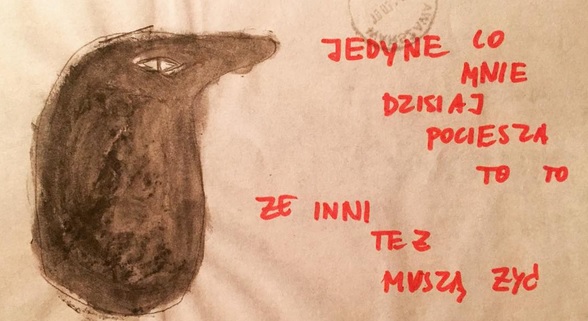 JEDYNE CO
MNIE
DZISIAJ
POCIESZA
TO TO
ŻE INNI
TEŻ
MUSZĄ ŻYĆ